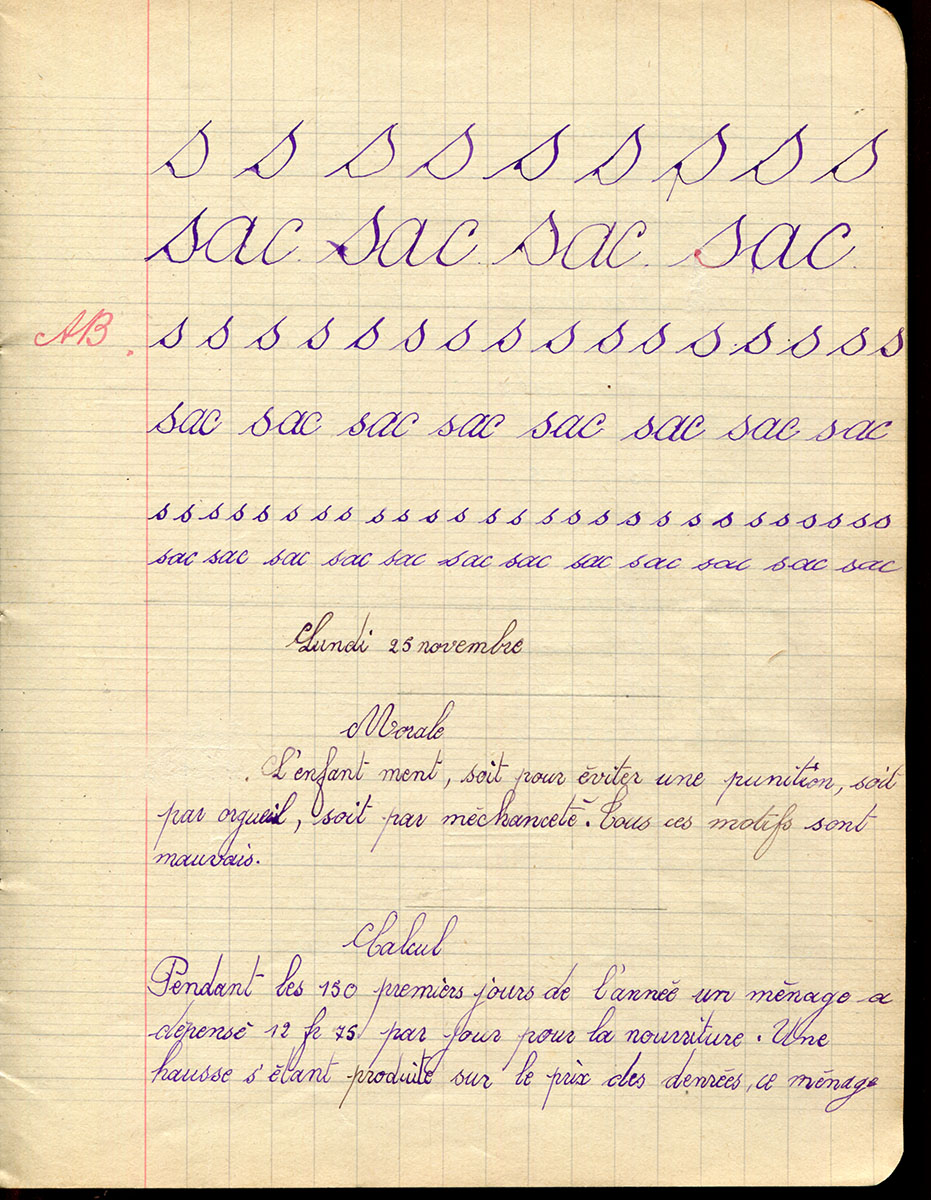 s s s s s s s s s
sac sac sac sac
AB. s s s s s s s s s s s s s s s s
sac sac sac sac sac sac sac sac
s s s s s s s s s s s s s s s s s s s s s s s s s s s
sac sac sac sac sac sac sac sac sac sac sac sac
Lundi 25 novembre
Morale
L'enfant ment, soit pour éviter une punition, soit
par orgueil, soit par méchanceté. Tous ces motifs sont
mauvais.
Calcul
Pendant les 130 premiers jours de l'année un ménage a
dépensé 12 fr 75 par jour pour la nourriture. Une
hausse s'étant produite sur le prix des denrées, ce ménage